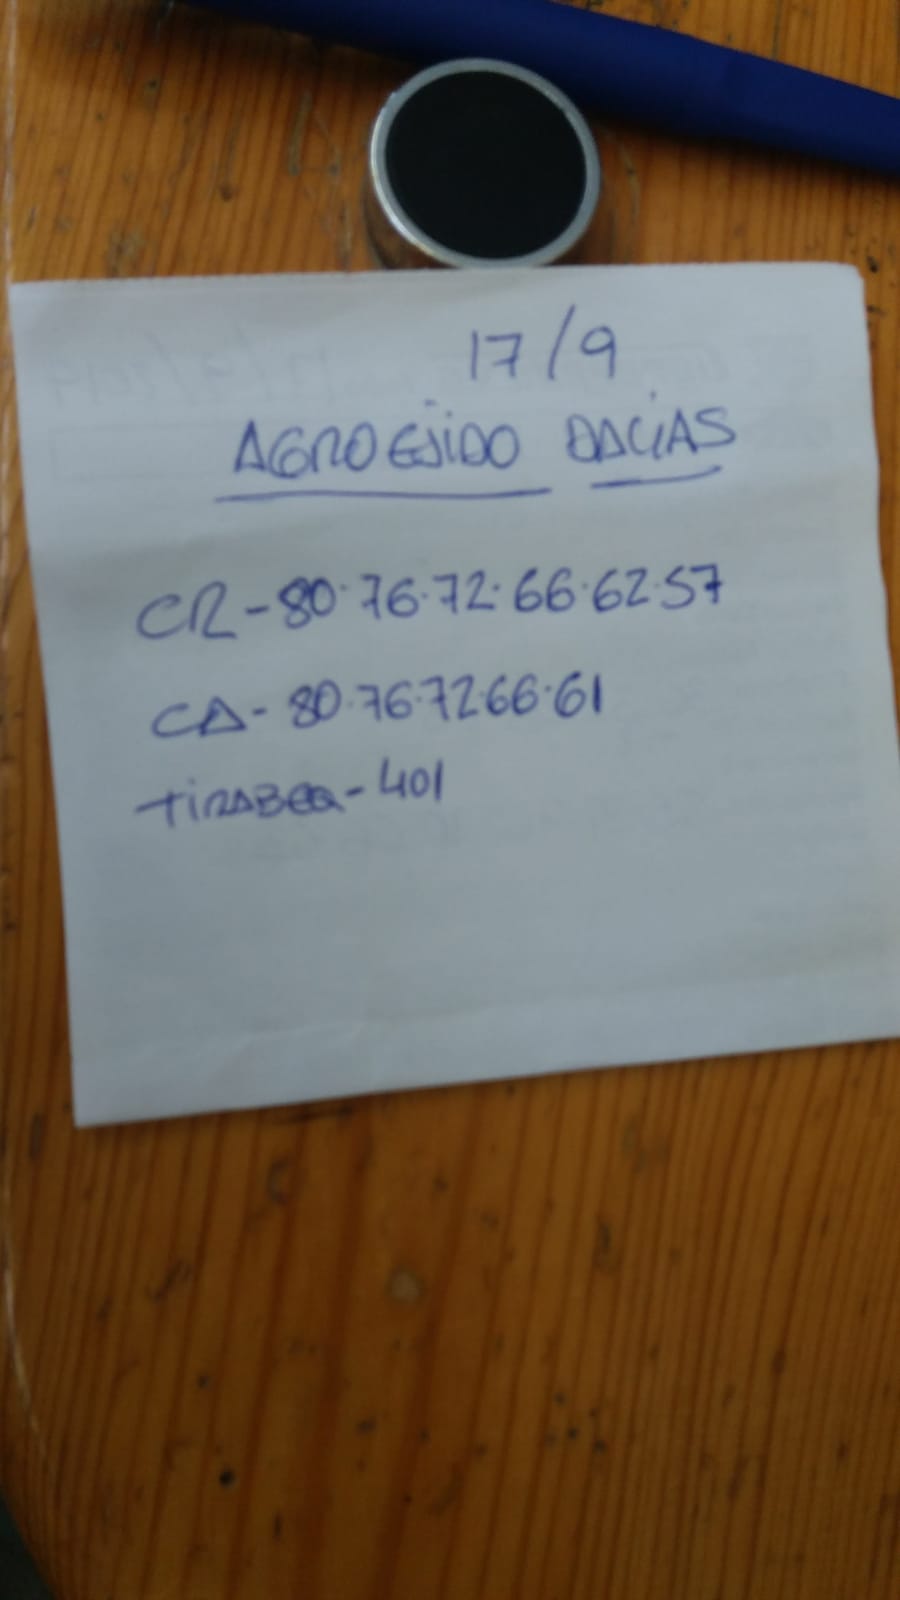 17/9
AGROEJIDO DALÍAS
CR-80·76·72·66·62·57
CA-80·76·72·66·61
TIRABEQ-401